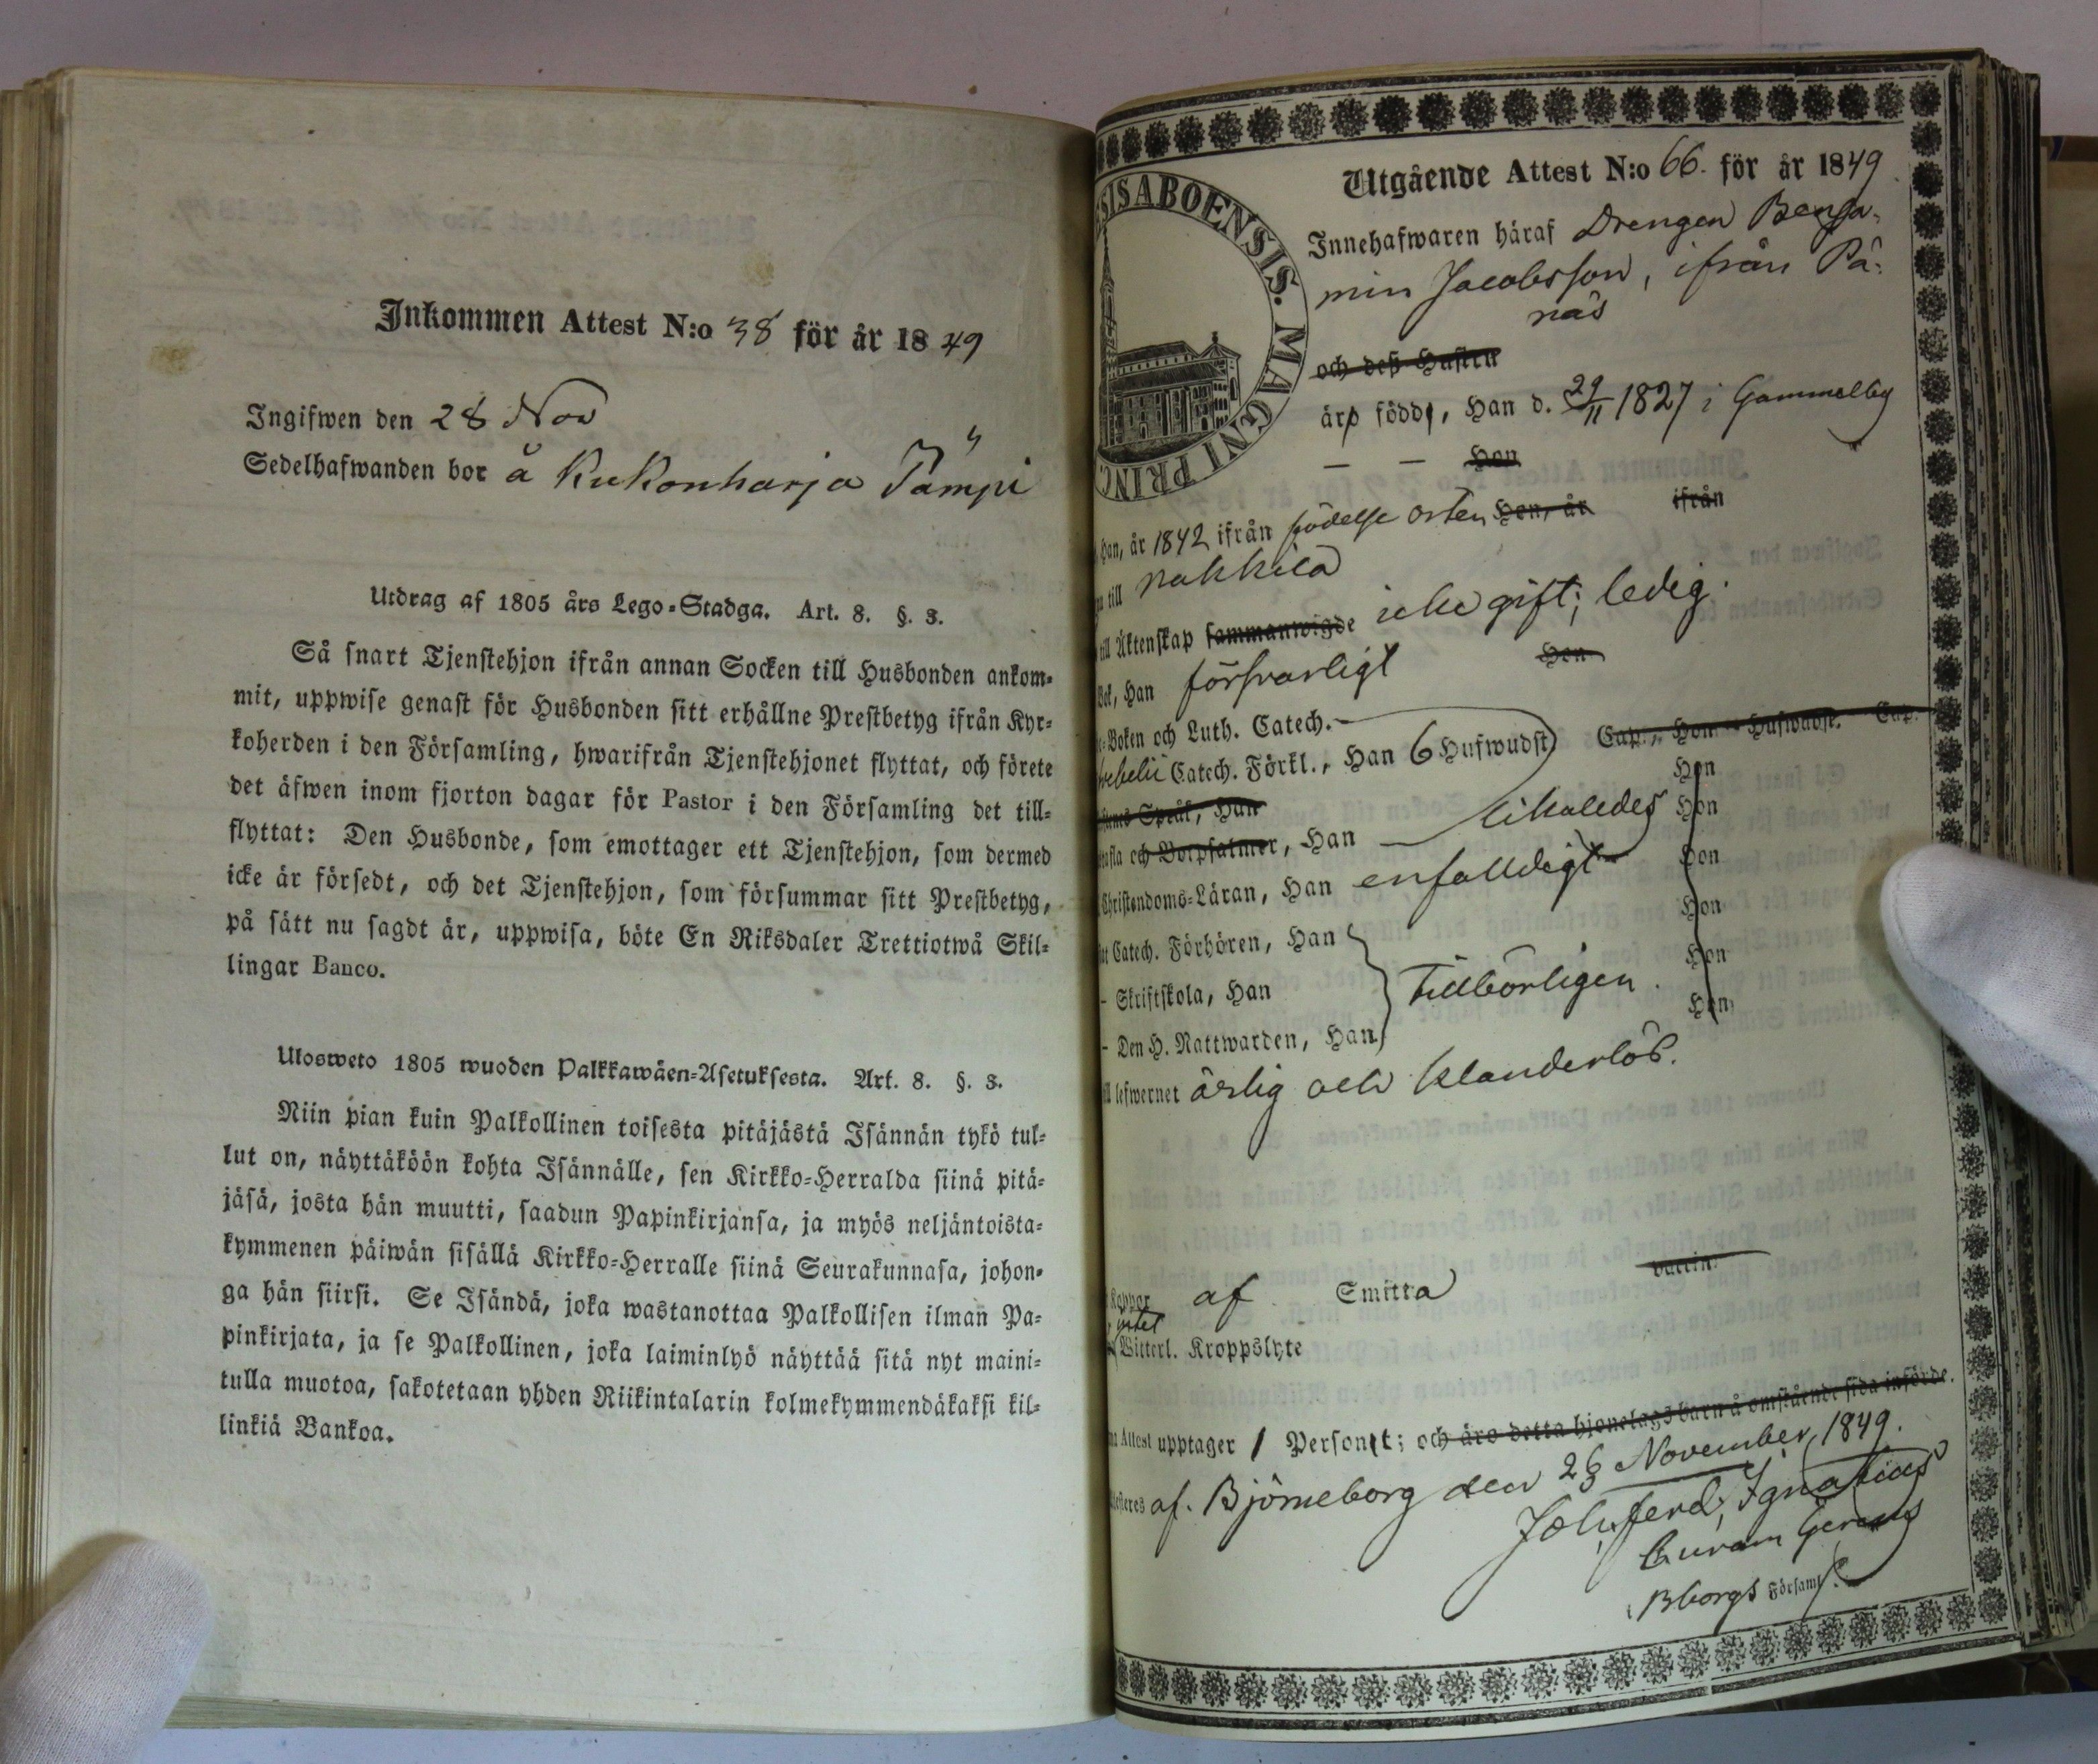 Inkommen Attest N:o 38 för år 1849
Ingifwen den 28 Nov
Sedelhafwanden bor å Kukonharja Tämpi
Utdrag af 1805 års Lego-Stadga. Art. 8. §. 3.
Så snart Tjenstehjon ifrån annan Socken till Husbonden ankom-
mit, uppwise genast för Husbonden sitt erhållne Prestbetyg ifrån Kyr-
koherden i den Församling, hwarifrån Tjenstehjonet flyttat, och förete
det äfwen inom fjorton dagar för Pastor i den Församling det till-
flyttat: Den Husbonde, som emottager ett Tjenstehjon, som dermed
icke är försedt, och det Tjenstehjon, som försummar sitt Prestbetyg,
på sätt nu sagdt är, uppwisa, böte En Riksdaler Trettiotwå Skil-
lingar Banco.
Ulosweto 1805 wuoden Palkkawäen-Asetuksesta. Art. 8. §. 3.
Niin pian kuin Palkollinen toisesta pitäjästä Isännän tykö tul-
lut on, näyttäköön kohta Isännälle, sen Kirkko-Herralda siinä pitä-
jäsä, josta hän muutti, saadun Papinkirjansa, ja myös neljäntoista-
kymmenen päiwän sisällä Kirkko-Herralle siinä Seurakunnasa, johon-
ga hän siirsi. Se Isändä, joka wastanottaa Palkollisen ilman Pa-
pinkirjata, ja se Palkollinen, joka laiminlyö näyttää sitä nyt maini-
tulla muotoa, sakotetaan yhden Riikintalarin kolmekymmendäkaksi kil-
linkiä Bankoa.
SISABOENSIS. MAGNI PRINC
Utgående Attest N:o 66. för år 1849
Innehafwaren häraf Drengen Benja-
min Jacobsson, ifrån På-
näs
och deß Hustru
äro född, Han d. 29/11 1827 i Gammelby
Hon
Han, år 1842 ifrån födelse orten Hon, år ifrån
till Nakkila
till Äktenskap sammanwigde icke gift; ledig.
Bok, Han försvarligt Hon
Boken och Luth. Catech.
Catech. Förkl., Han 6 Hufwudst Cap., Hon Hufwudst. Cap.
Språk, Han Hon
och Botpsalmer, Han likaledes Hon
Christendoms-Läran, Han enfalldigt Hon
Catech. Förhören, Han Hon
- Skriftskola, Han Tillbörligen. Hon
- Den H. Nattwarden, Han Hon
lefwernet ärlig och klanderlös.
Koppor af Smitta vaccin.
Witterl. Kroppslyte
Attest upptager 1 Person; och äro detta hjonelags barn å omstående sida införde.
af. Björneborg den 26 November, 1849.
Joh. Ferd. Ignatius
Curam Gerens
Bborgs Församl.